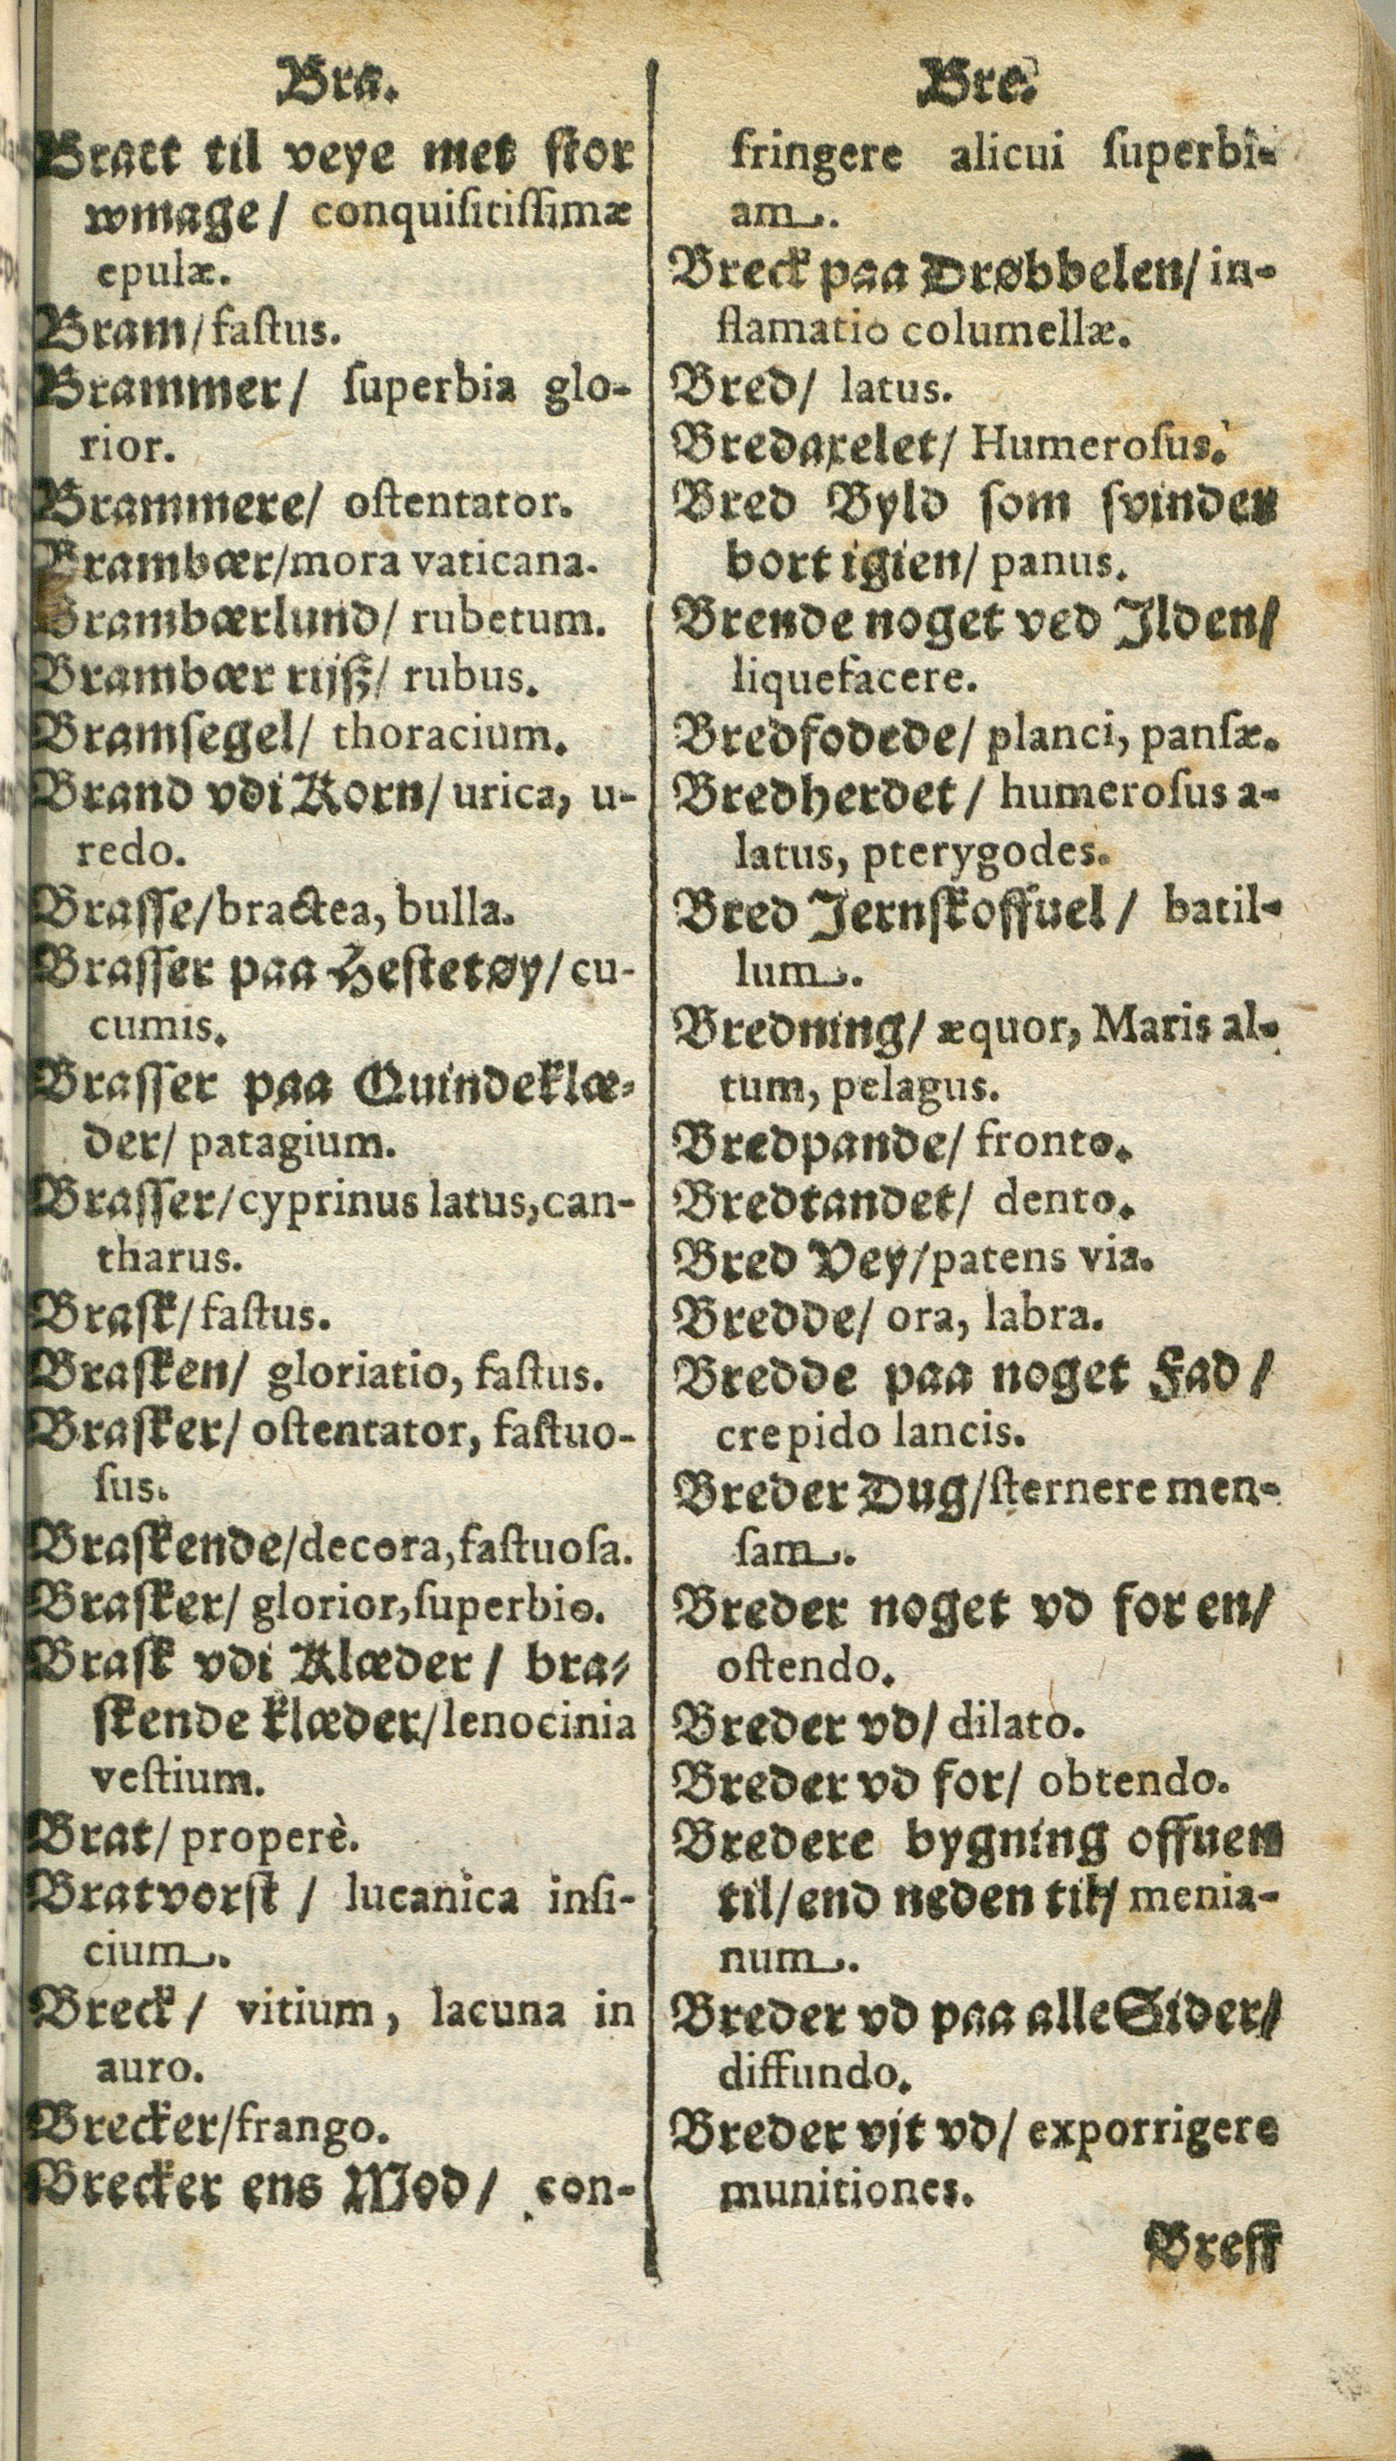 Bra.
Bratt til veye met stor
wmage/ conquisitissimæ
epulæ.
Bram/fastus.
Brammer/ superbia glo-
rior.
Brammere/ ostentator.
Brambær/mora vaticana.
Brambærlund/ rubetum.
Brambær rijsz/ rubus.
Bramsegel/ thoracium.
Brand vdi Korn/ urica, u-
redo.
Brasse/bractea, bulla.
Brasser paa Hestetøy/ cu-
cumis.
Brasser paa Quindeklæ-
der/ patagium.
Brasser/cyprinus latus,can-
tharus.
Brask/fastus.
Brasken/ gloriatio, fastus.
Brasker/ ostentator, fastuo-
sus.
Braskende/decora,fastuosa.
Brasker/ glorior,superbio.
Brask vdi Klæder / bra-
skende klæder/lenocinia
vestium.
Brat/properè.
Bratvorst / lucanica insi-
cium.
Breck/ vitium, lacuna in
auro.
Brecker/frango.
Brecker ens Mod/ con-
Bre.
fringere alicui superbi-
am.
Breck paa Drøbbelen/ in-
flamatio columellæ.
Bred/ latus.
Bredaxelet/ Humerosus.
Bred Byld som svinder
bort igien/ panus.
Brende noget ved Ilden/
liquefacere.
Bredfodede/ planci, pansæ.
Bredherdet / humerosus a-
latus, pterygodes.
Bred Jernskoffuel / batil-
lum.
Bredning/ æquor, Maris al-
tum, pelagus.
Bredpande/ fronto.
Bredtandet/ dento.
Bred Vey/patens via.
Bredde/ ora, labra.
Bredde paa noget Fad /
crepido lancis.
Breder Dug/sternere men-
sam.
Breder noget vd for en/
ostendo.
Breder vd/ dilato.
Breder vd for/ obtendo.
Bredere bygning offuen
til/end neden til/ menia-
num.
Breder vd paa alle Sider/
diffundo.
Breder vjt vd/ exporrigere
munitiones.
Breff